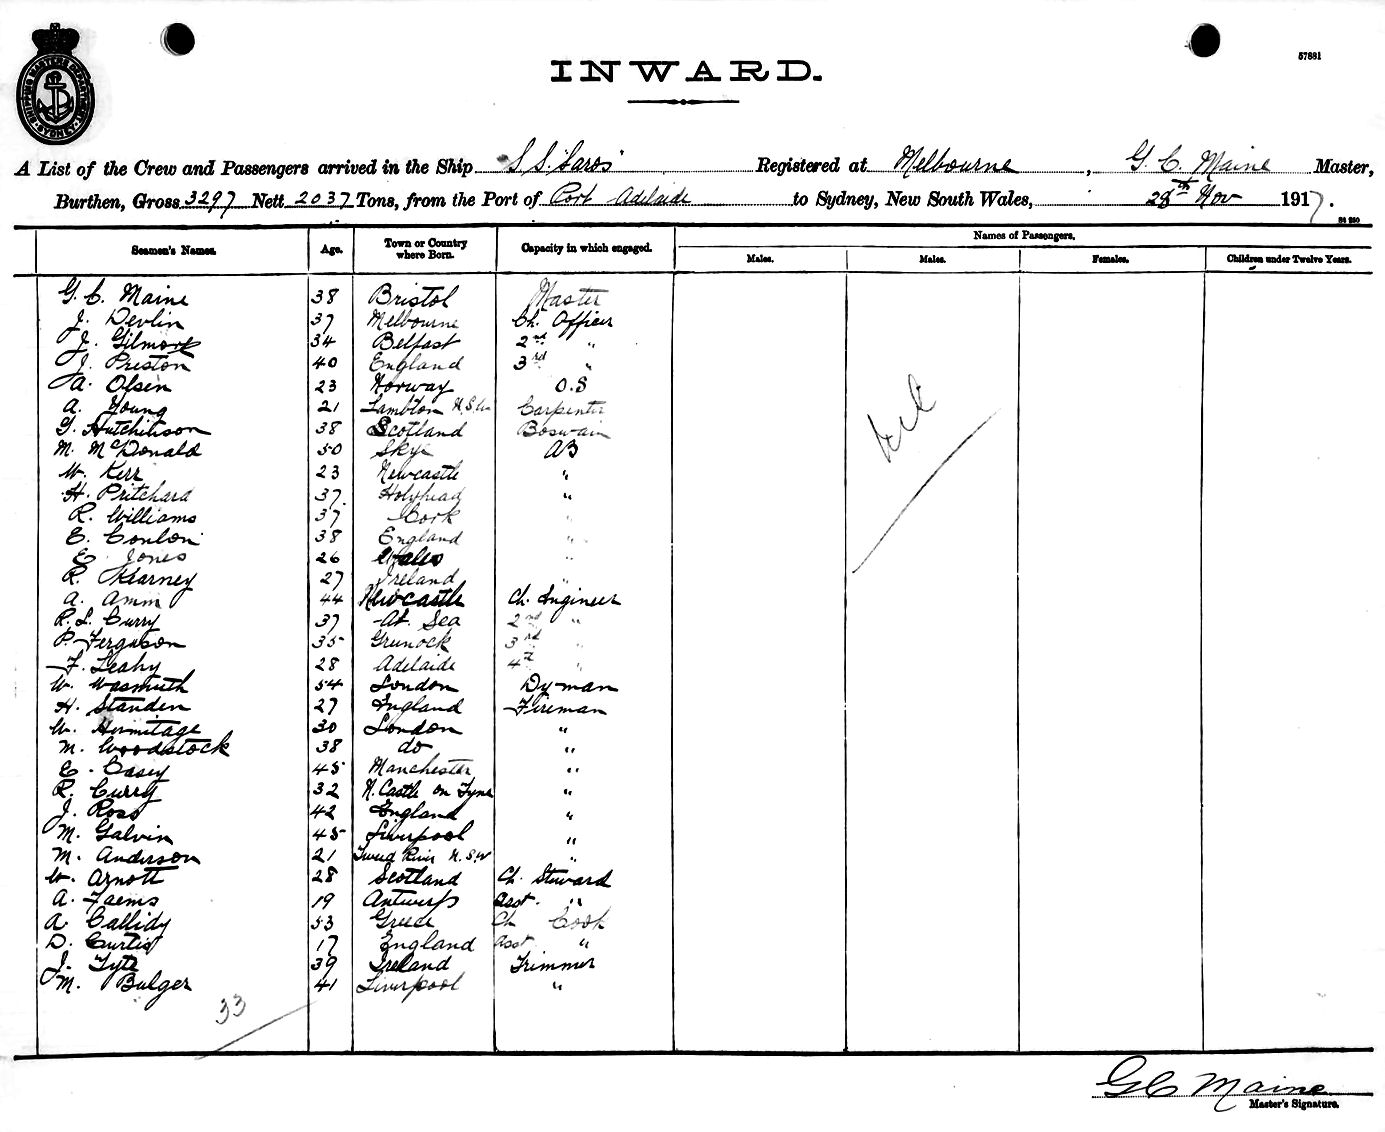 SHIPPING MASTERS DEPARTMENT SYDNEY
57881
INWARD.
A List of the Crew and Passengers arrived in the Ship S.S. "Saros" Registered at Melbourne, G. C. Maine Master,
Burthen, Gross 3297 Nett 2037 Tons, from the Port of Port Adelaide to Sydney, New South Wales, 28th Nov 1917.
Seamen's Names. Age. Town or Country where Born. Capacity in which engaged. Names of Passengers.
Males. Males. Females. Children under Twelve Years.
G. C. Maine 38 Bristol Master
J. Devlin 37 Melbourne Ch. Officer
J. Gilmore 34 Belfast 2nd "
J. Preston 40 England 3rd "
A. Olsen 23 Norway O.S
A. Young 21 Lambton N.S.W
G. Hutchinson 38 Scotland Boswain
M. McDonald 50 Skye AB
W. Kerr 23 Newcastle "
H. Pritchard 37 Holyhead "
R. Williams 37 Cork "
E. Conlon 38 England "
E. Jones 26 Wales "
R. Kearney 27 Ireland "
A. Amm 44 Newcastle Ch. Engineer
R. L. Curry 37 At Sea 2nd "
P. Ferguson 35 Grenock 3rd "
F. Leahy 28 Adelaide 4th "
W. Wasmuth 54 London Dy-man
H. Standen 27 England Fireman
W. Hermitage 30 London "
M. Woodstock 38 do "
E. Casey 45 Manchester "
R. Curry 32 N. Castle on Tyne "
J. Ross 42 England "
M. Galvin 45 Liverpool "
M. Anderson 21 Tweed River N.S.W "
W. Arnott 28 Scotland Ch. Steward
A. Faems 19 Antwerp Asst. "
A. Callidy 53 Greece Ch Cook
D. Curtis 17 England Asst "
J. Tyte 39 Ireland Trimmer
M. Bulger 41 Liverpool "
33
G C Maine
Master's Signature.